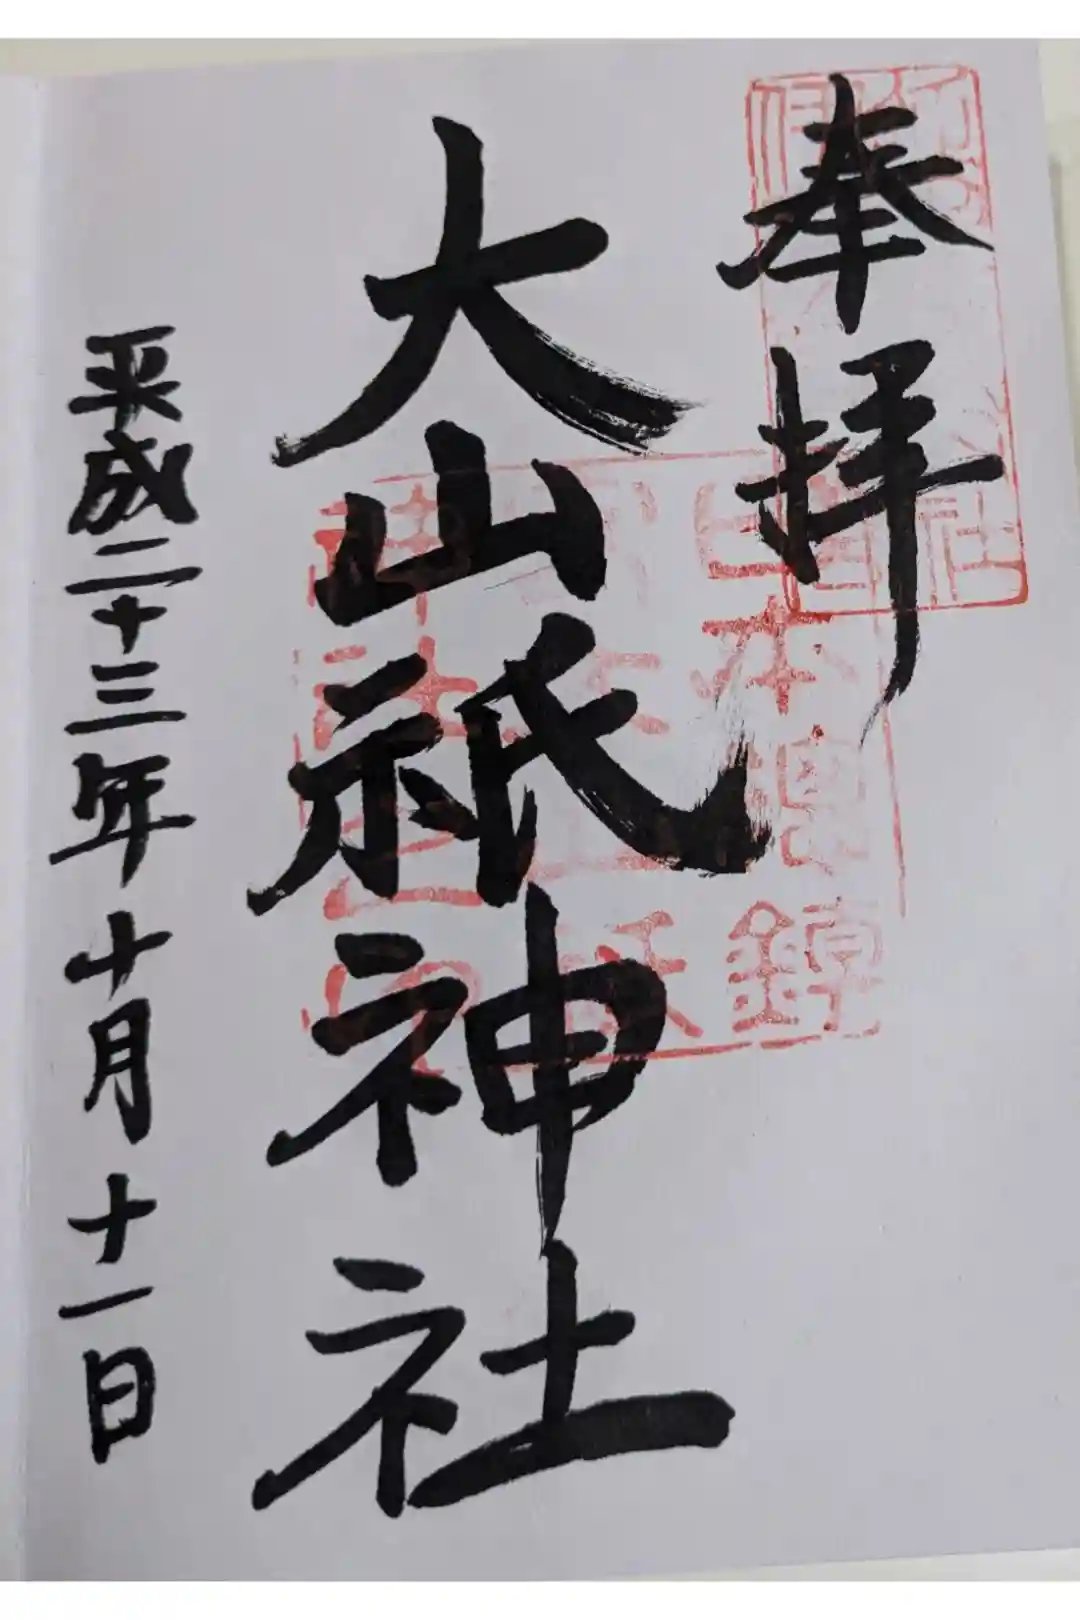 奉拝
大山祇神社
平成二十三年十月十一日
日本總鎮